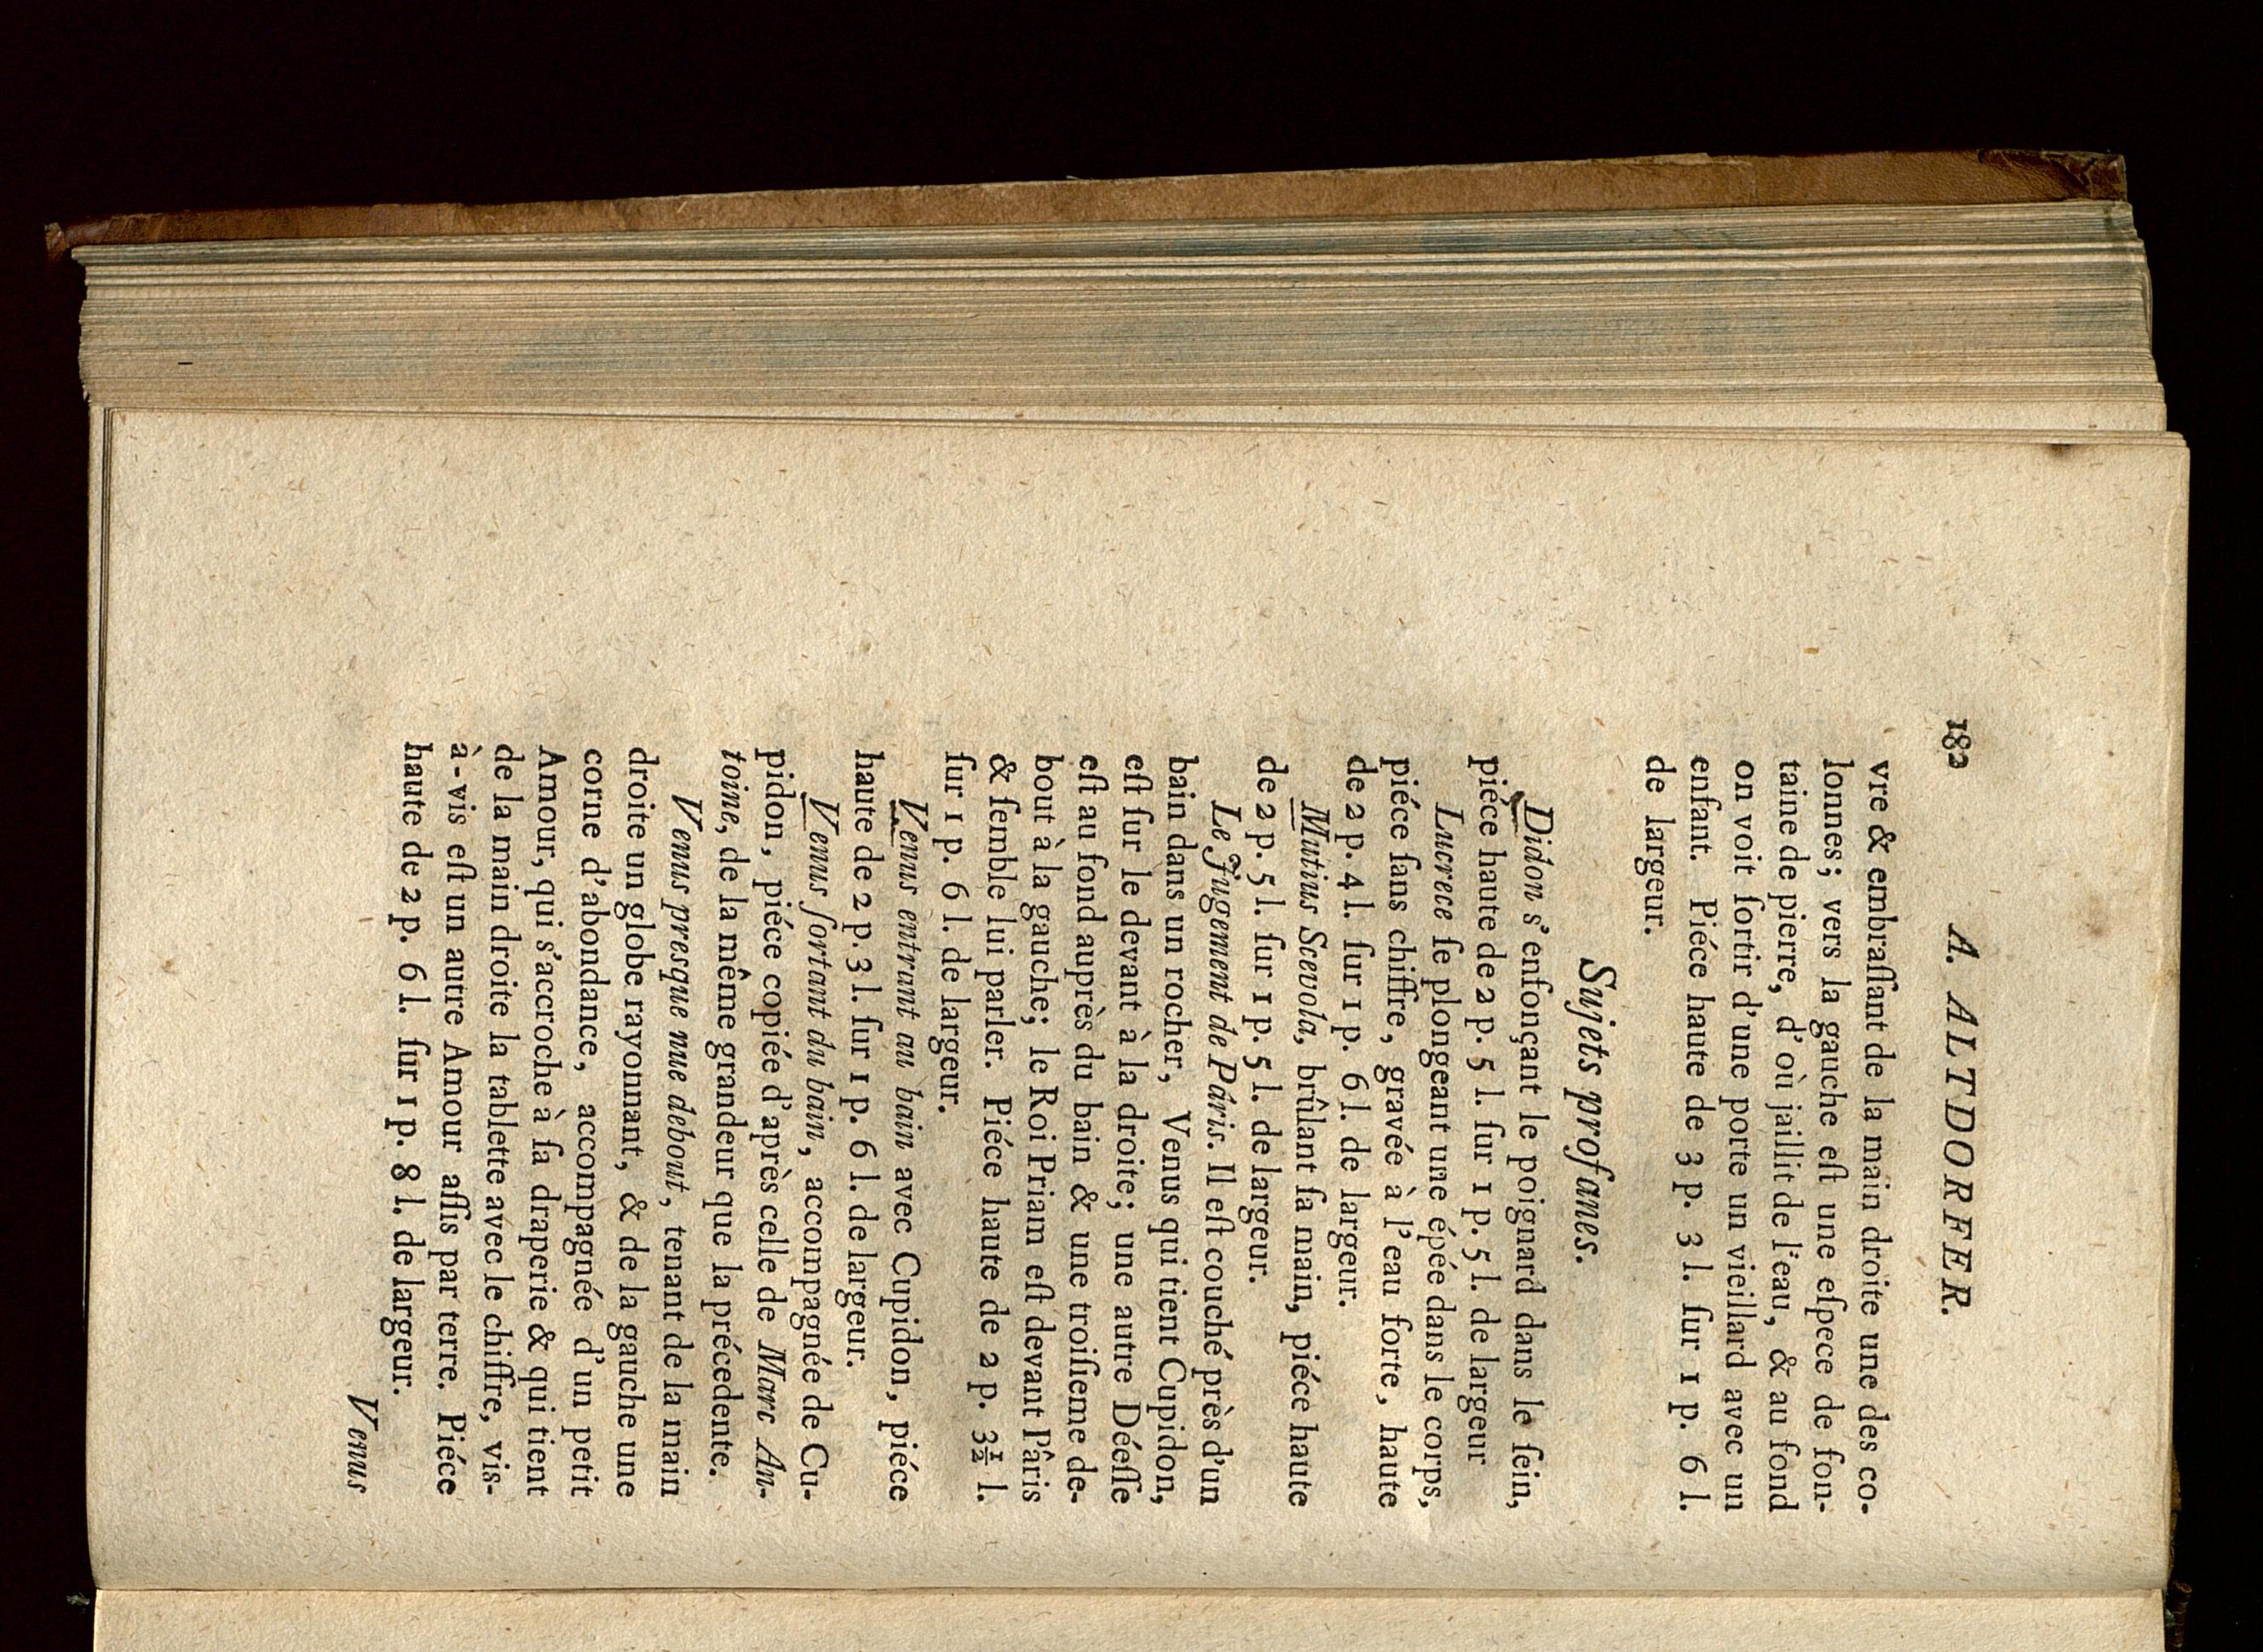 182 A. ALTDORFER.
vre & embraſſant de la main droite une des co-
lonnes; vers la gauche eſt une eſpece de fon-
taine de pierre, d'où jaillit de l'eau, & au fond
on voit ſortir d'une porte un vieillard avec un
enfant. Piéce haute de 3 p. 3 l. ſur 1 p. 6 l.
de largeur.
Sujets profanes.
Didon s'enfonçant le poignard dans le ſein,
piéce haute de 2 p. 5 l. ſur 1 p. 5 l. de largeur
Lucrece ſe plongeant une épée dans le corps,
piéce ſans chiffre, gravée à l'eau forte, haute
de 2 p. 4 l. ſur 1 p. 6 l. de largeur.
Mutius Scevola, brûlant ſa main, piéce haute
de 2 p. 5 l. ſur 1 p. 5 l. de largeur.
Le Jugement de Páris. Il eſt couché près d'un
bain dans un rocher, Venus qui tient Cupidon,
eſt ſur le devant à la droite; une autre Déeſſe
eſt au fond auprès du bain & une troiſieme de-
bout à la gauche; le Roi Priam eſt devant Pâris
& ſemble lui parler. Piéce haute de 2 p. 3½ l.
ſur 1 p. 6 l. de largeur.
Venus entrant au bain avec Cupidon, piéce
haute de 2 p. 3 l. ſur 1 p. 6 l. de largeur.
Venus ſortant du bain, accompagnée de Cu-
pidon, piéce copiée d'après celle de Marc An-
toine, de la même grandeur que la précedente.
Venus presque nue debout, tenant de la main
droite un globe rayonnant, & de la gauche une
corne d'abondance, accompagnée d'un petit
Amour, qui s'accroche à ſa draperie & qui tient
de la main droite la tablette avec le chiffre, vis-
à-vis eſt un autre Amour aſſis par terre. Piéce
haute de 2 p. 6 l. ſur 1 p. 8 l. de largeur.
Venus